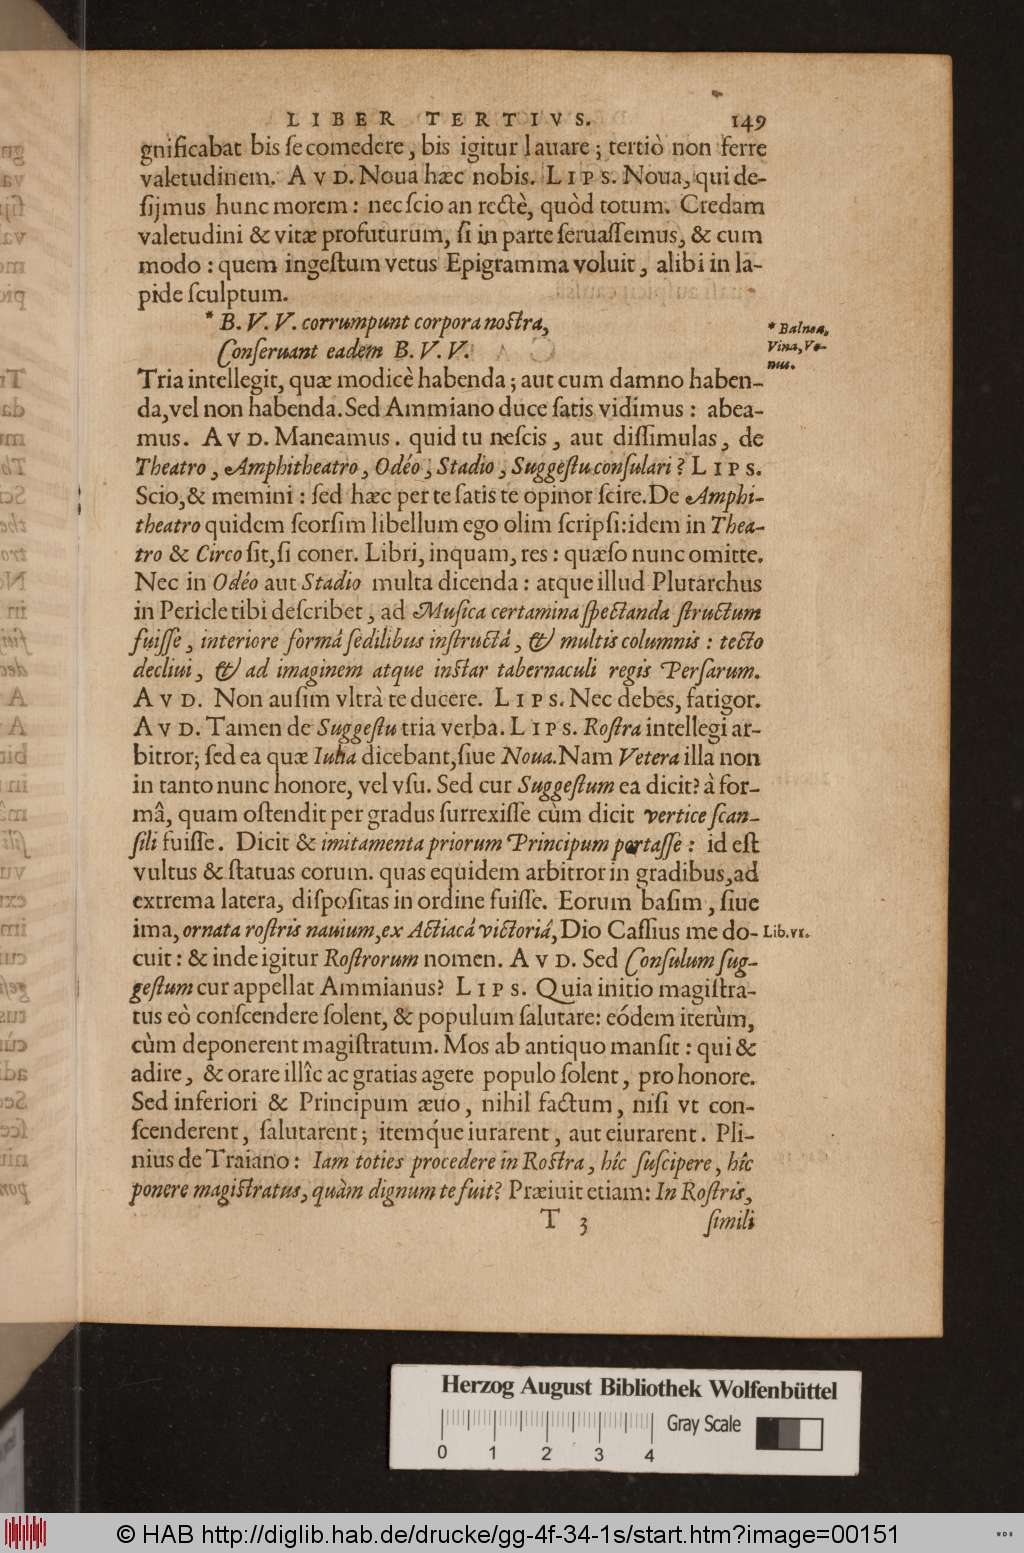 LIBER TERTIVS. 149
gnificabat bis ſe comedere, bis igitur lauare; tertiò non ferre
valetudinem. AVD. Noua hæc nobis. LIPS. Noua, qui de-
ſijmus hunc morem: nec ſcio an rectè, quòd totum. Credam
valetudini & vitæ profuturum, ſi in parte ſeruaſſemus, & cum
modo: quem ingeſtum vetus Epigramma voluit, alibi in la-
pide ſculptum.
* B. V. V. corrumpunt corpora noſtra,
Conſeruant eadem B. V. V.
* Balnea,
Vina, Ve-
nus.
Tria intellegit, quæ modicè habenda; aut cum damno haben-
da, vel non habenda. Sed Ammiano duce ſatis vidimus: abea-
mus. AVD. Maneamus. quid tu neſcis, aut diſſimulas, de
Theatro, Amphitheatro, Odéo, Stadio, Suggeſtu conſulari? LIPS.
Scio, & memini: ſed hæc per te ſatis te opinor ſcire. De Amphi-
theatro quidem ſeorſim libellum ego olim ſcripſi: idem in Thea-
tro & Circo ſit, ſi coner. Libri, inquam, res: quæſo nunc omitte.
Nec in Odéo aut Stadio multa dicenda: atque illud Plutarchus
in Pericle tibi deſcribet, ad Muſica certamina ſpectanda ſtructum
fuiſſe, interiore formâ ſedilibus inſtructâ, & multis columnis: tecto
decliui, & ad imaginem atque inſtar tabernaculi regis Perſarum.
AVD. Non auſim vltrà te ducere. LIPS. Nec debes, fatigor.
AVD. Tamen de Suggeſtu tria verba. LIPS. Roſtra intellegi ar-
bitror; ſed ea quæ Iulia dicebant, ſiue Noua. Nam Vetera illa non
in tanto nunc honore, vel vſu. Sed cur Suggeſtum ea dicit? à for-
mâ, quam oſtendit per gradus ſurrexiſſe cùm dicit vertice ſcan-
ſili fuiſſe. Dicit & imitamenta priorum Principum portaſſe: id eſt
vultus & ſtatuas eorum. quas equidem arbitror in gradibus, ad
extrema latera, diſpoſitas in ordine fuiſſe. Eorum baſim, ſiue
ima, ornata roſtris nauium, ex Actiacâ victoriâ, Dio Caſſius me do- Lib. VI.
cuit: & inde igitur Roſtrorum nomen. AVD. Sed Conſulum ſug-
geſtum cur appellat Ammianus? LIPS. Quia initio magiſtra-
tus eò conſcendere ſolent, & populum ſalutare: eódem iterùm,
cùm deponerent magiſtratum. Mos ab antiquo manſit: qui &
adire, & orare illîc ac gratias agere populo ſolent, pro honore.
Sed inferiori & Principum æuo, nihil factum, niſi vt con-
ſcenderent, ſalutarent; itemq́ue iurarent, aut eiurarent. Pli-
nius de Traiano: Iam toties procedere in Roſtra, hîc ſuſcipere, hîc
ponere magiſtratus, quàm dignum te fuit? Præiuit etiam: In Roſtris,
T 3 ſimili
Herzog August Bibliothek Wolfenbüttel
Gray Scale
0 1 2 3 4
© HAB http://diglib.hab.de/drucke/gg-4f-34-1s/start.htm?image=00151